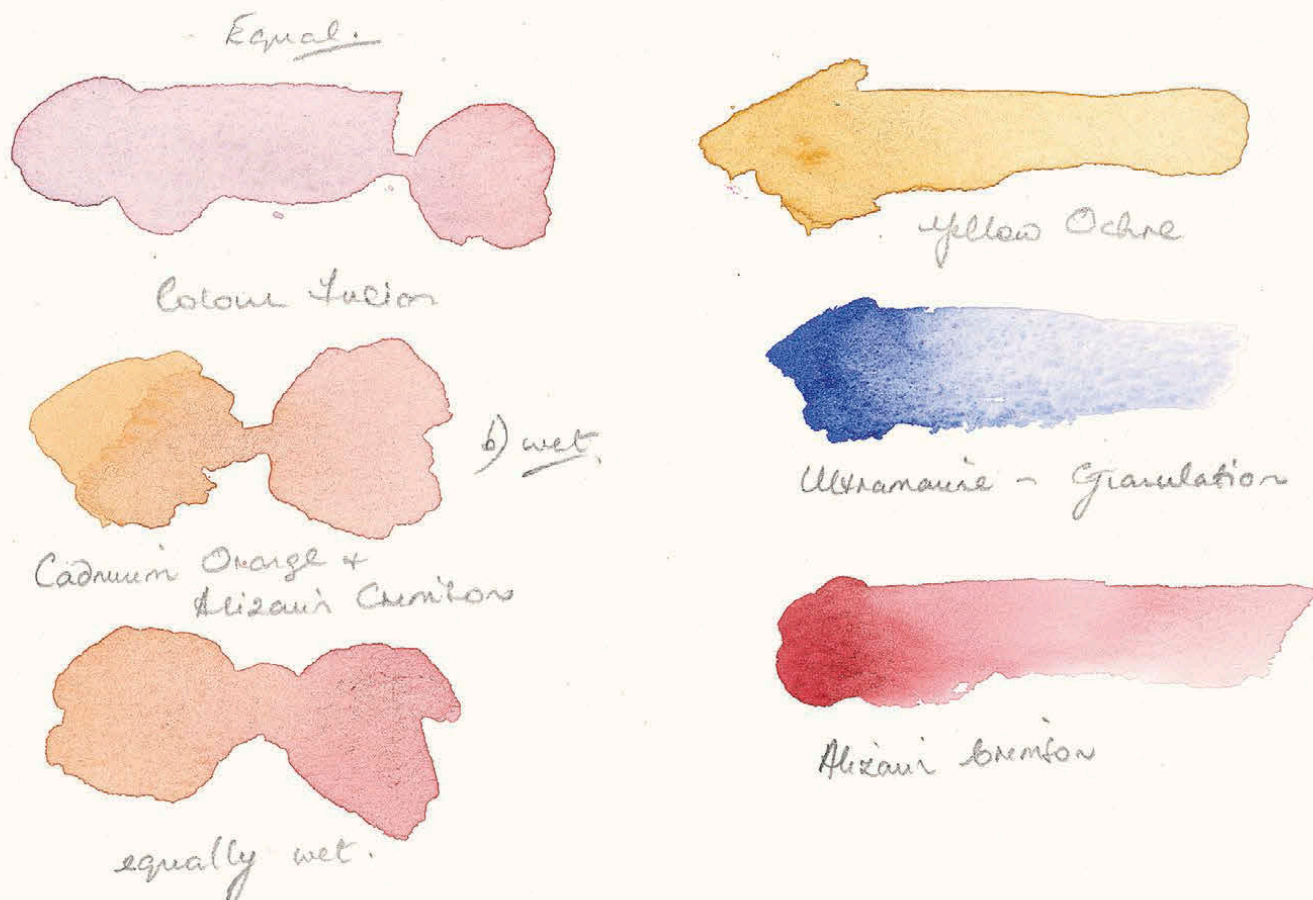 Equal.
Colour Fusion
b) wet.
Cadmium Orange +
Alizarin Crimson
equally wet.
Yellow Ochre
Ultramarine - Granulation
Alizarin Crimson